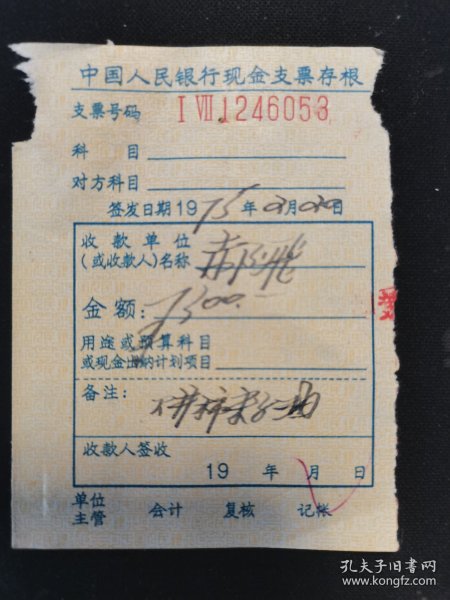 中国人民银行现金支票存根
支票号码 I VII 1246053
科 目
对方科目
签发日期1975年03月020日
收款单位
(或收款人)名称
金额: 7300.—
用途或预算科目
或现金出纳计划项目
备注:
收款人签收
19 年 月 日
单位
主管 会计 复核 记帐
孔夫子旧书网
www.kongfz.com